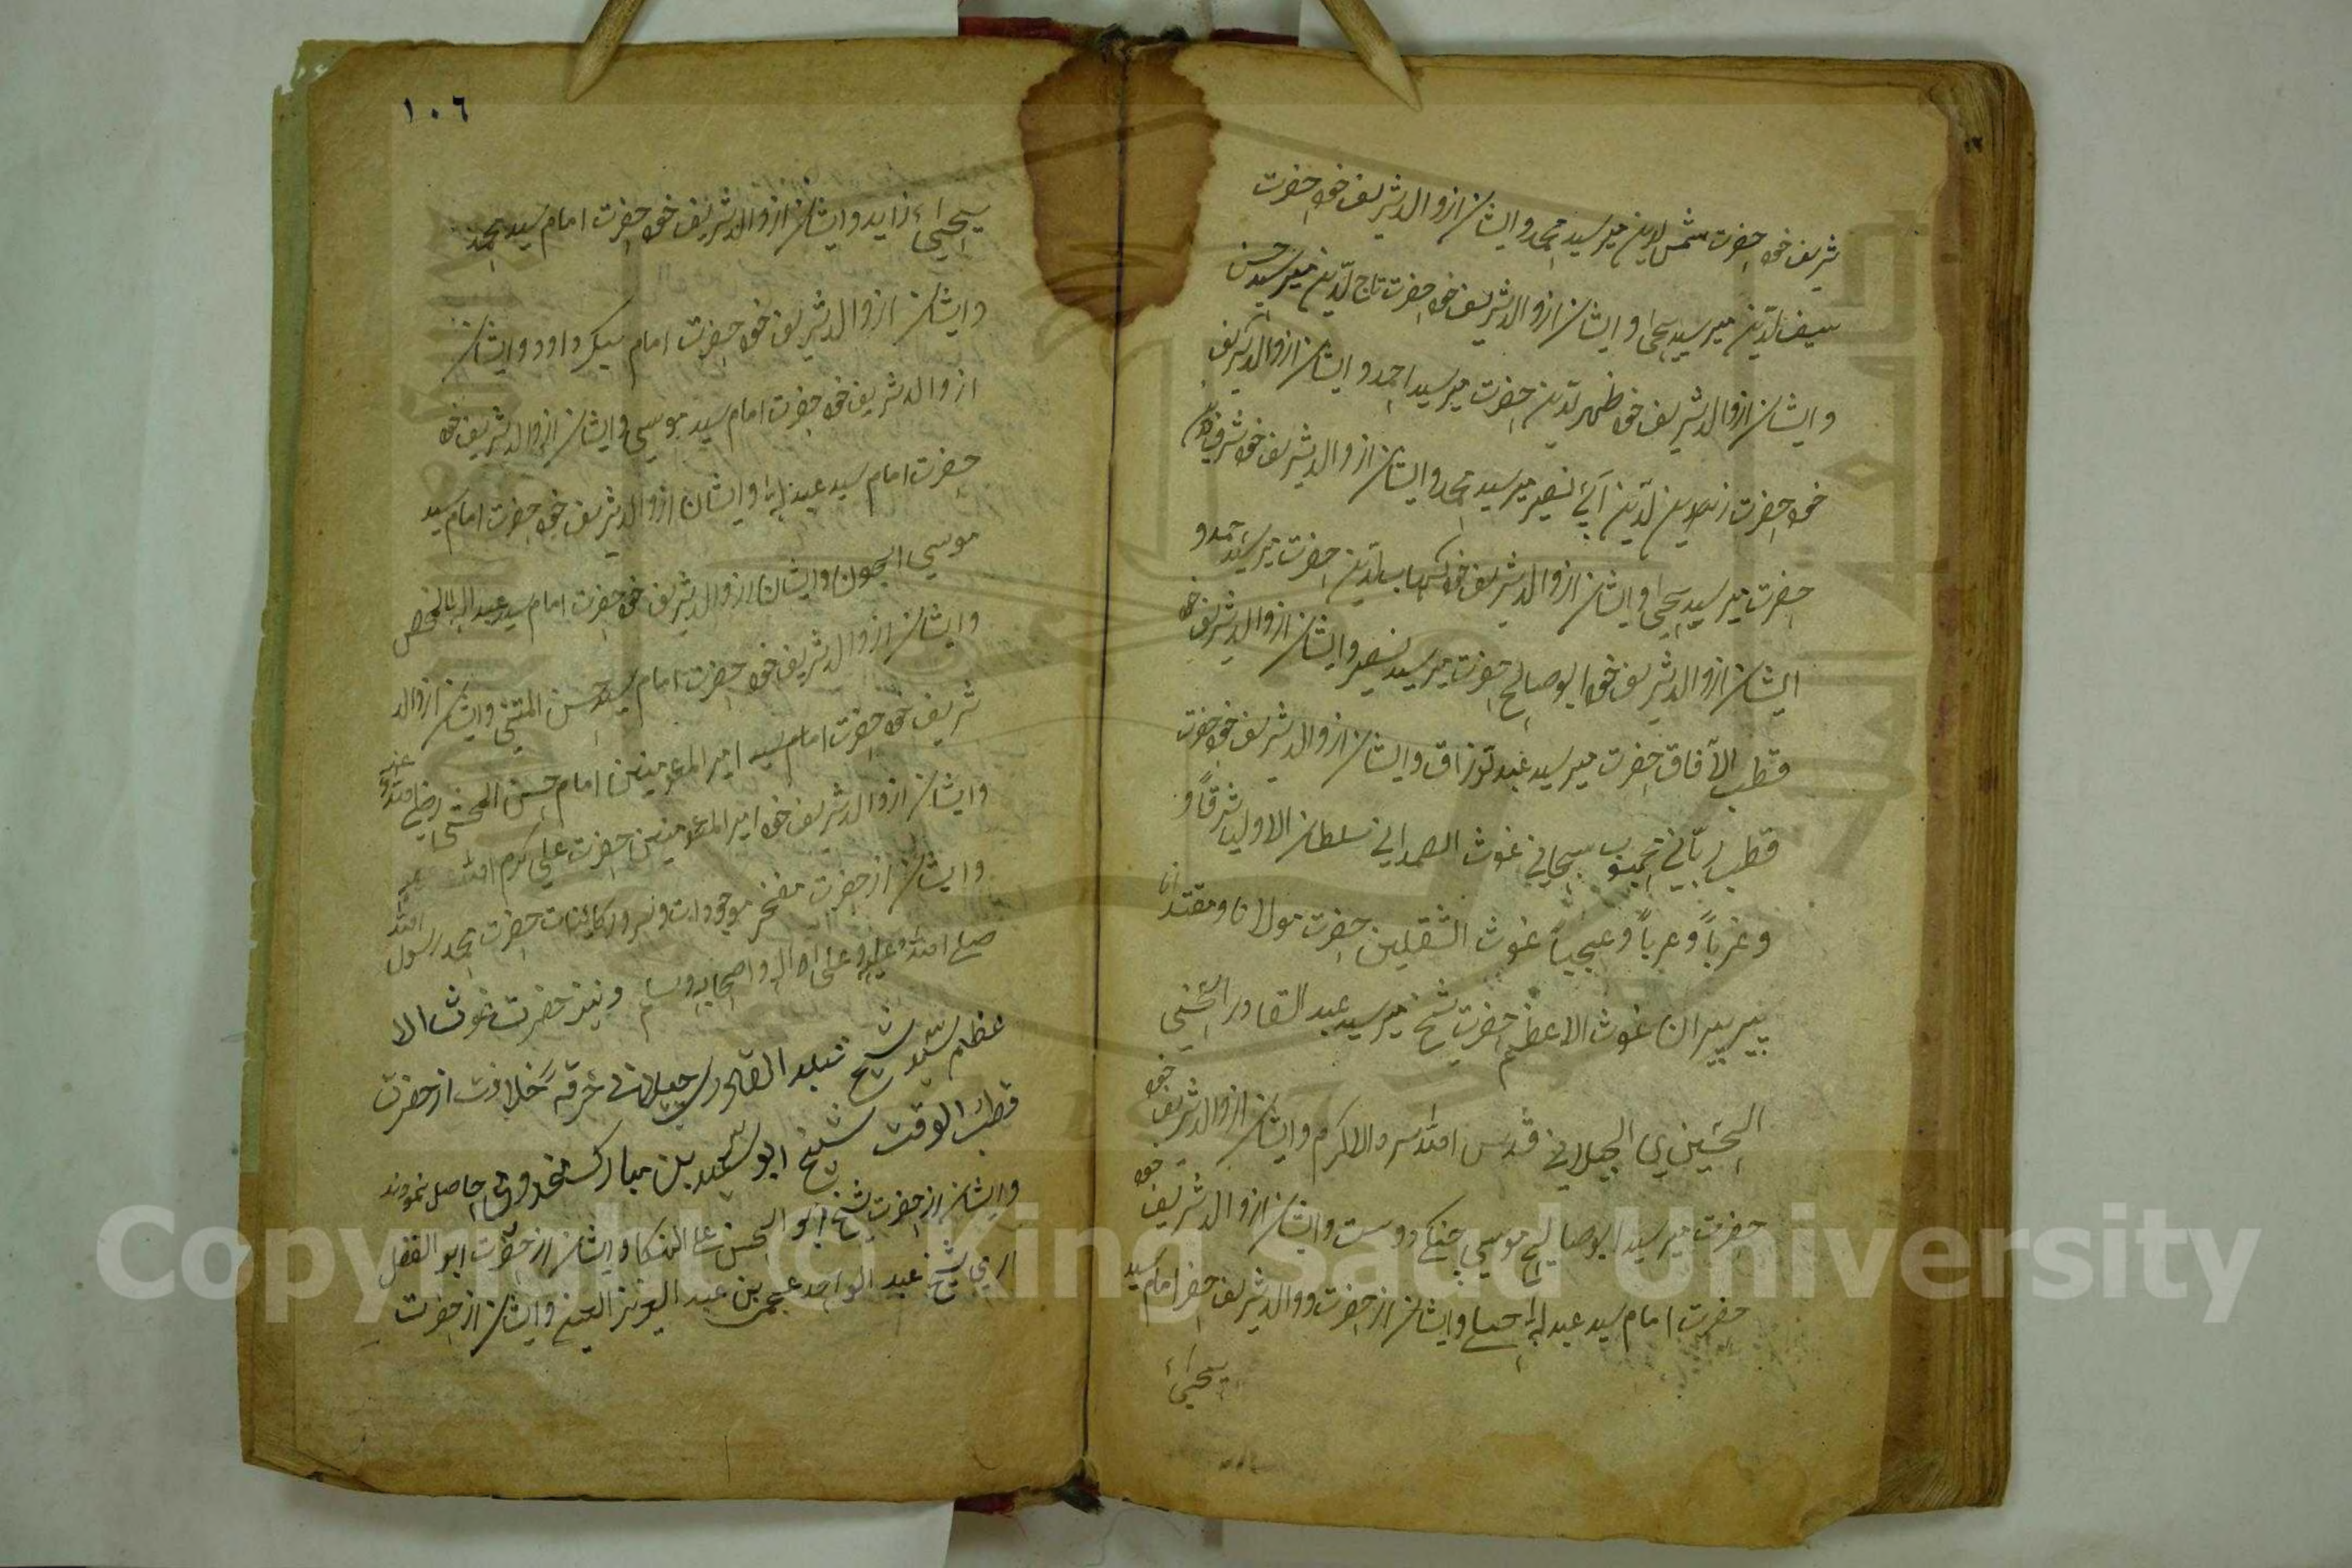 شريف خود حضرت شمس الدين مير سيد محمد و ايشان از والد شريف خود حضرت
سيف الدين مير سيد يحيى و ايشان از والد شريف خود حضرت تاج الدين مير سيد حسن
و ايشان از والد شريف خود ظهير الدين حضرت مير سيد احمد و ايشان از والد شريف
خود حضرت زين الدين ابي نصير مير سيد محمد و ايشان از والد شريف خود
حضرت مير سيد يحيى و ايشان از والد شريف خود شهاب الدين حضرت مير سيد احمد و
ايشان از والد شريف خود ابو صالح حضرت مير سيد نصر و ايشان از والد شريف خود
قطب الآفاق حضرت مير سيد عبد الرزاق و ايشان از والد شريف خود حضرت
قطب رباني محبوب سبحاني غوث الصمداني سلطان الاوليا شرقاً و
و غرباً و عرباً و عجمياً غوث الثقلين حضرت مولانا و مقتدانا
پير پيران غوث الاعظم حضرت شيخ مير سيد عبد القادر الحسني
الحسيني الجيلاني قدس الله سره الاكرم و ايشان از والد شريف خود
حضرت مير سيد ابو صالح موسي جنكي دوست و ايشان از والد شريف خود
حضرت امام سيد عبد الله و ايشان از حضرت والد شريف حضرت امام سيد
يحيى
١٠٦
يحيى زايد و ايشان از والد شريف خود حضرت امام سيد محمد
و ايشان از والد شريف خود حضرت امام داود و ايشان
از والد شريف خود حضرت امام سيد موسي و ايشان از والد شريف خود
حضرت امام سيد عبد الله و ايشان از والد شريف خود حضرت امام سيد
موسي الجون و ايشان از والد شريف خود حضرت امام سيد عبد الله المحض
و ايشان از والد شريف خود حضرت امام سيد حسن المثنى و ايشان از والد
شريف خود حضرت امام سيد امير المؤمنين امام حسن المجتبى رضي الله عنه
و ايشان از والد شريف خود امير المؤمنين حضرت علي كرم الله
و ايشان از حضرت مفخر موجودات و سرور كائنات حضرت محمد رسول الله
صلى الله عليه و على اله و اصحابه و سلم و نيز حضرت غوث الا
عظم سيد شيخ عبد القادر جيلاني خرقه خلافت از حضرت
قطب الوقت شيخ ابو سعيد بن مبارك مخدومي حاصل نمودند
و ايشان از حضرت شيخ ابو الحسن علي و ايشان از حضرت ابو الفضل
شيخ عبد الواحد بن عبد العزيز و ايشان از حضرت
Copyright © King Saud University